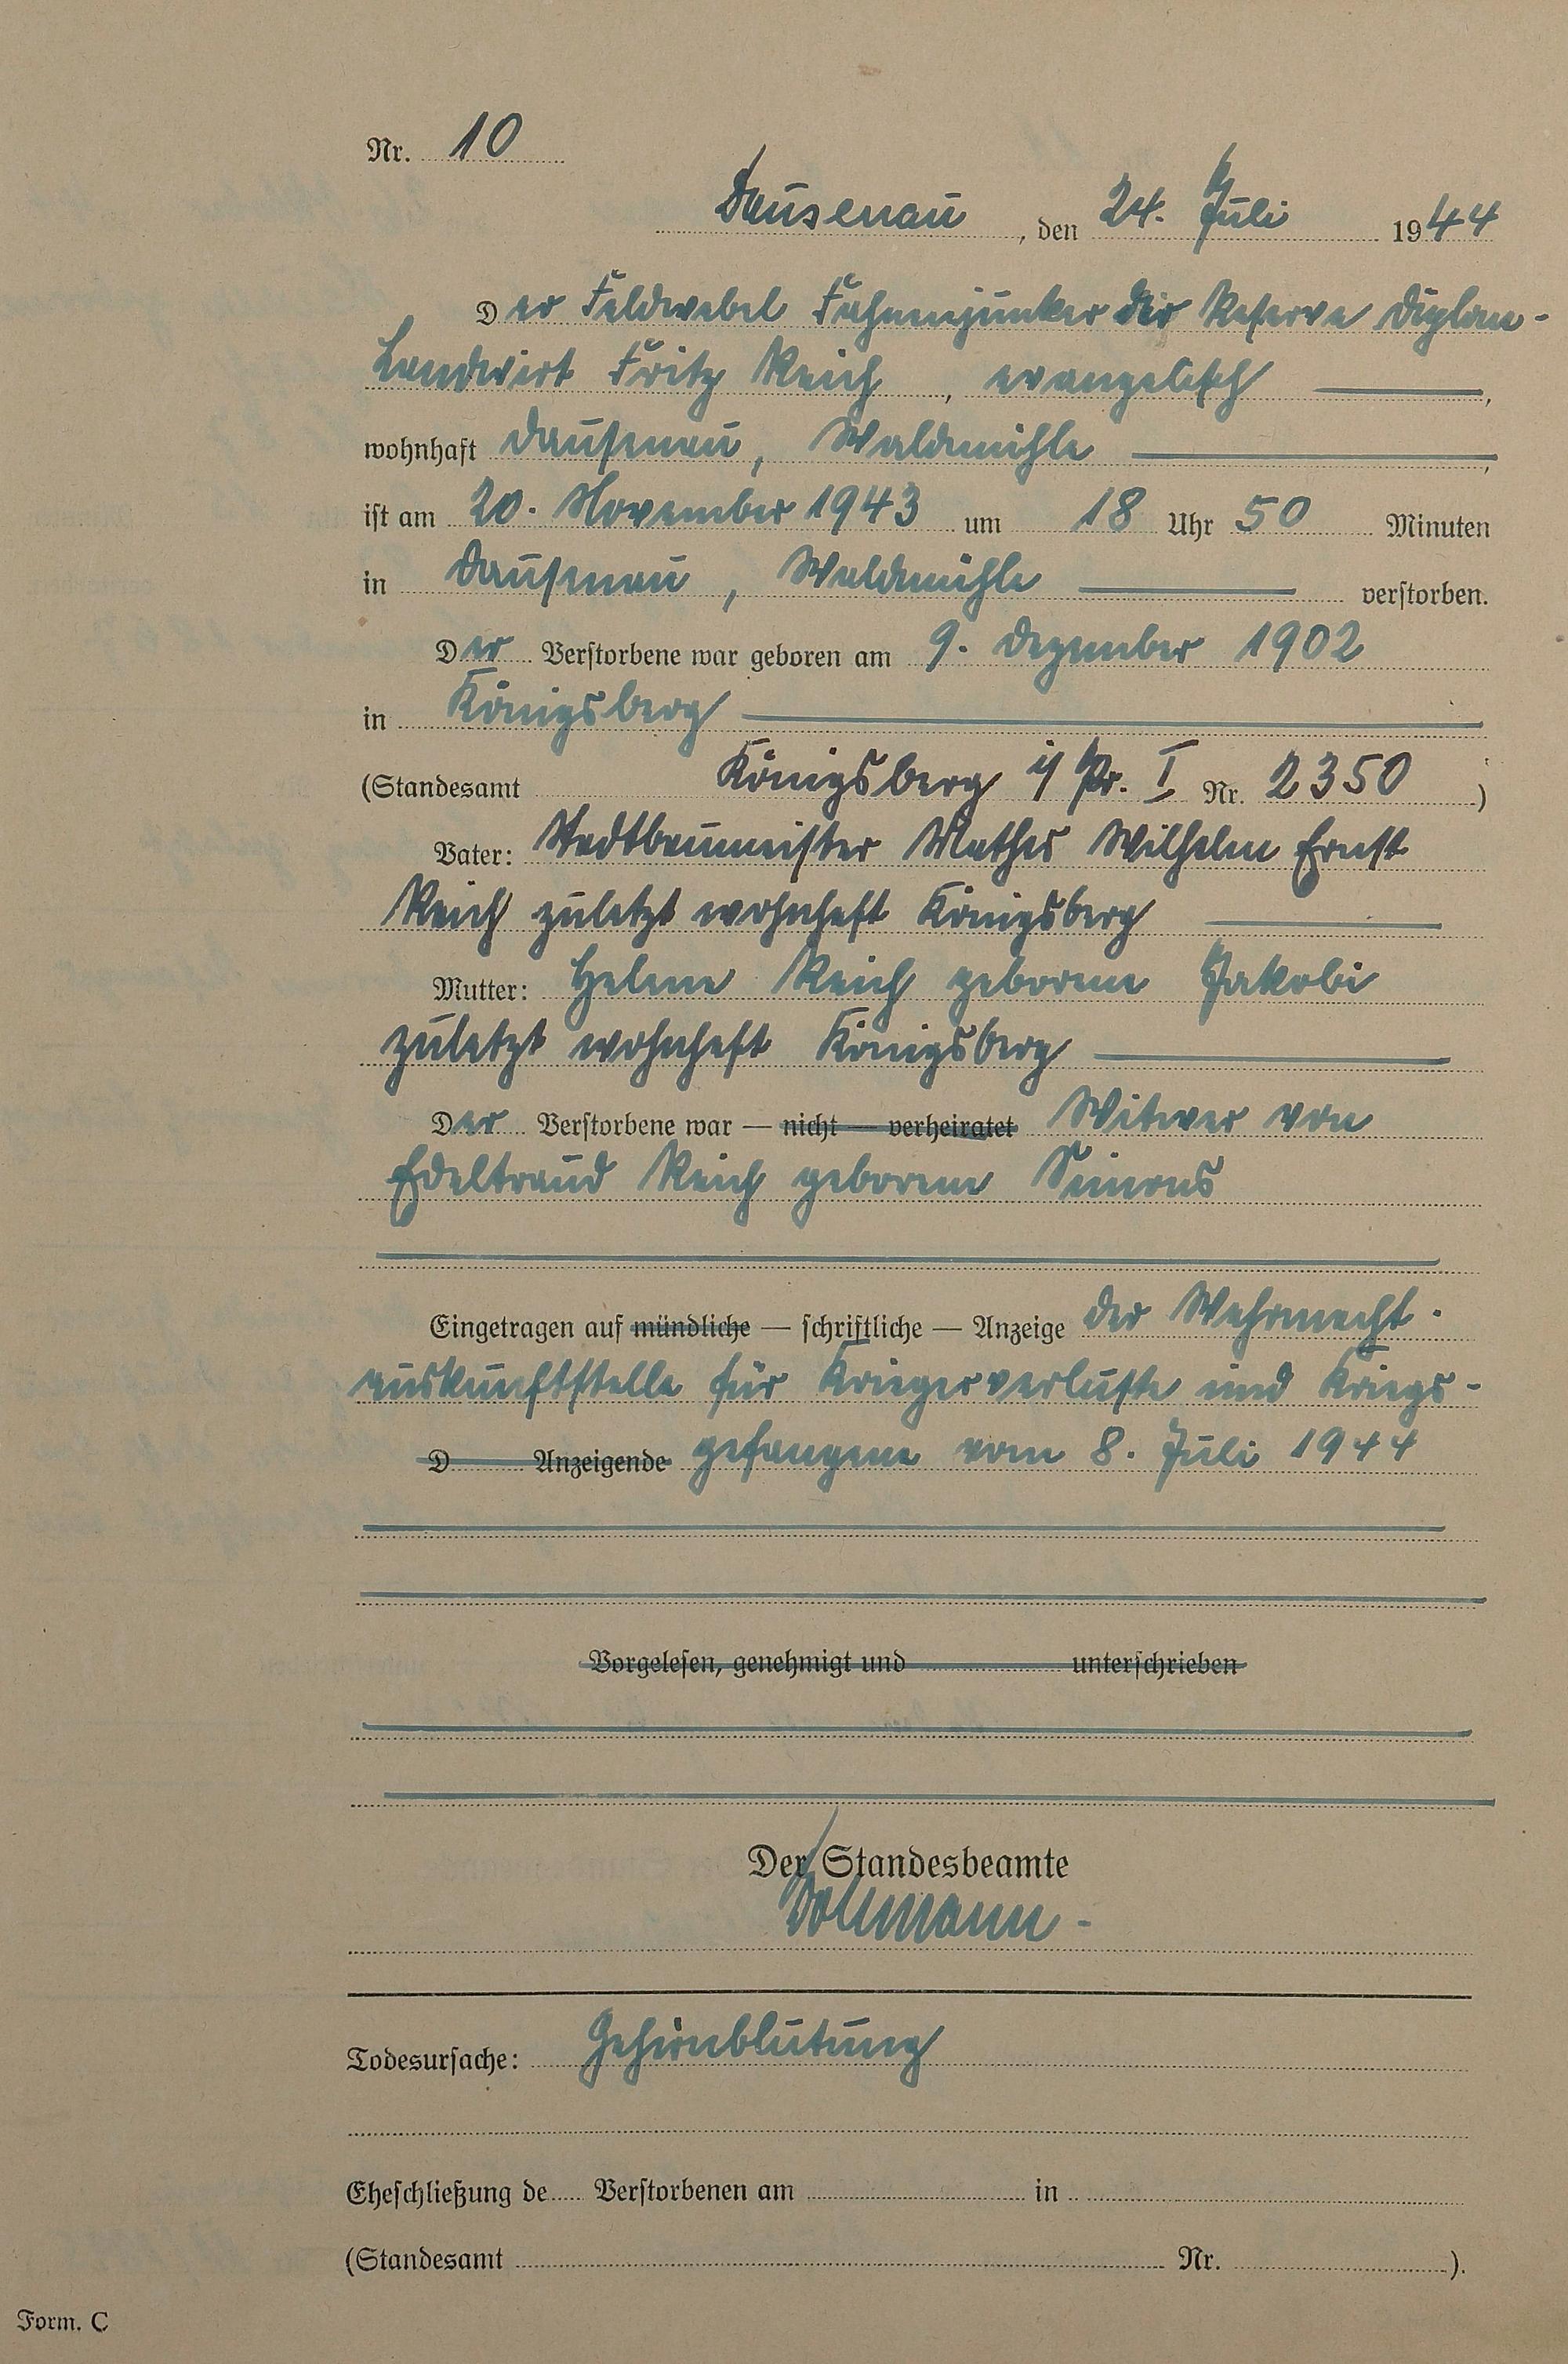 Nr. 10
Dausenau, den 24. Juli 1944
Der Feldwebel Fahnenjunker der Reserve Diplom-
Landwirt Fritz Reich, evangelisch
wohnhaft Dausenau, Waldmühle
ist am 20. November 1943 um 18 Uhr 50 Minuten
in Dausenau, Waldmühle verstorben.
Der Verstorbene war geboren am 9. Dezember 1902
in Königsberg
(Standesamt Königsberg i/ Pr. I Nr. 2350)
Vater: Stadtbaumeister Mathes Wilhelm Ernst
Reich zuletzt wohnhaft Königsberg
Mutter: Helene Reich geborene Jakobi
zuletzt wohnhaft Königsberg
Der Verstorbene war — nicht — verheiratet Witwer von
Edeltraud Reich geborene Simons
Eingetragen auf mündliche — schriftliche — Anzeige der Wehrmacht-
auskunftstelle für Kriegerverluste und Kriegs-
D Anzeigende gefangene vom 8. Juli 1944
Vorgelesen, genehmigt und unterschrieben
Der Standesbeamte
Todesursache: Gehirnblutung
Eheschließung de Verstorbenen am in
(Standesamt Nr. ).
Form. C